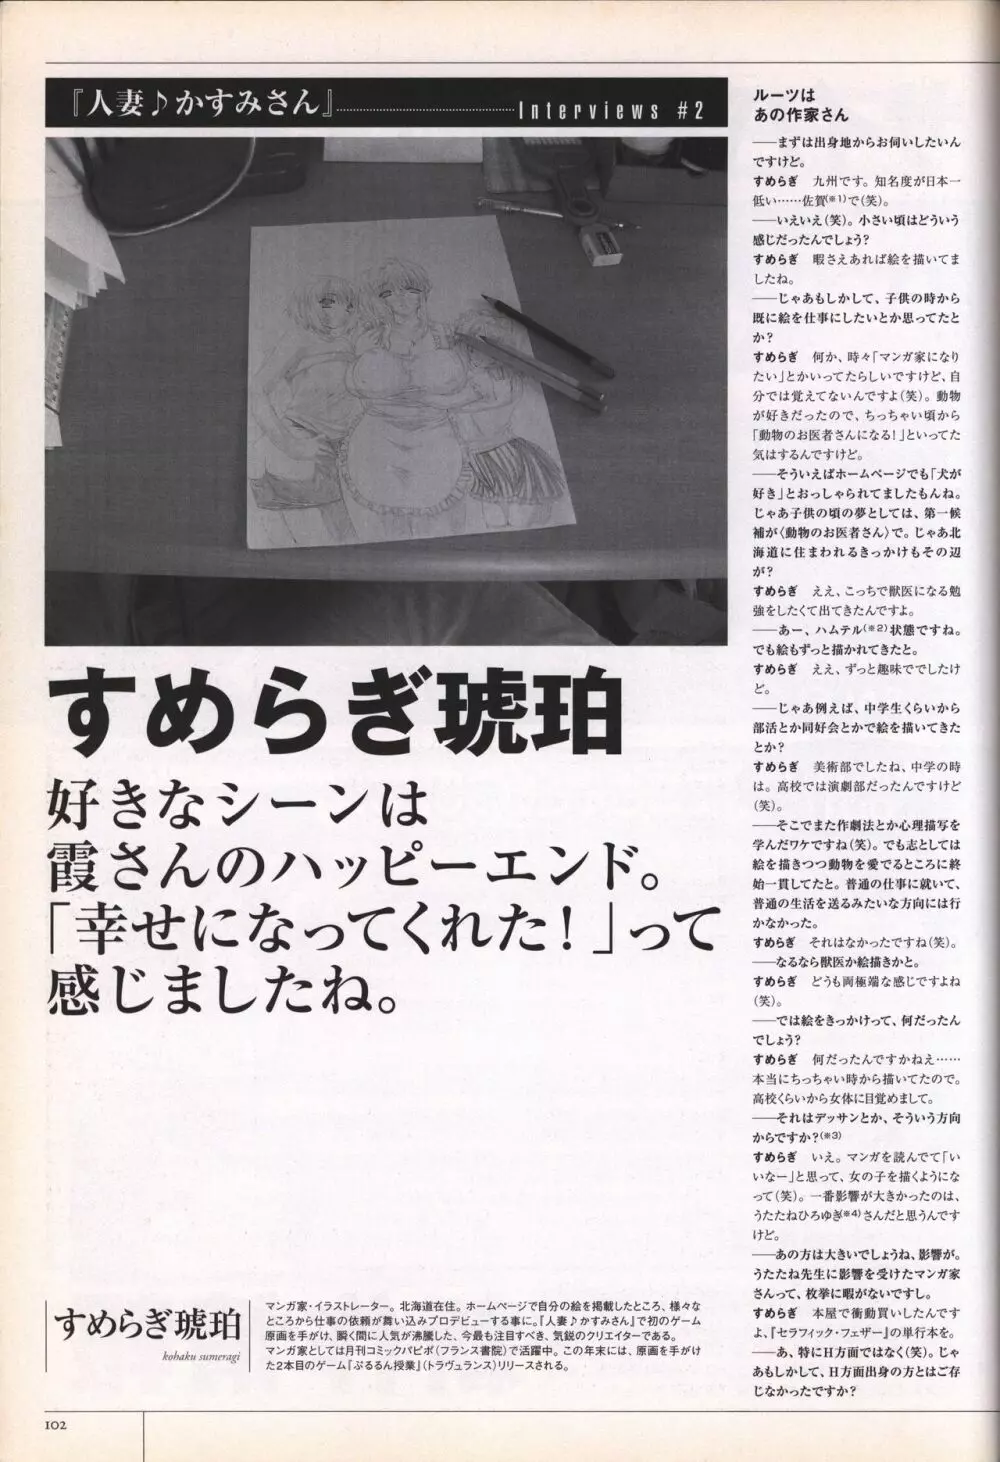 『人妻♪かすみさん』
Interviews #2
すめらぎ琥珀
好きなシーンは
霞さんのハッピーエンド。
「幸せになってくれた！」って
感じましたね。
すめらぎ琥珀
kohaku sumeragi
マンガ家・イラストレーター。北海道在住。ホームページで自分の絵を掲載したところ、様々な
ところから仕事の依頼が舞い込みプロデビューする事に。『人妻♪かすみさん』で初のゲーム
原画を手がけ、瞬く間に人気が沸騰した、今最も注目すべき、気鋭のクリエイターである。
マンガ家としては月刊コミックパピポ（フランス書院）で活躍中。この年末には、原画を手がけ
た2本目のゲーム『ぷるるん授業』（トラヴュランス）リリースされる。
ルーツは
あの作家さん
――まずは出身地からお伺いしたいん
ですけど。
すめらぎ　九州です。知名度が日本一
低い……佐賀(※1)で（笑）。
――いえいえ（笑）。小さい頃はどういう
感じだったんでしょう？
すめらぎ　暇さえあれば絵を描いてま
したね。
――じゃあもしかして、子供の時から
既に絵を仕事にしたいとか思ってたと
か？
すめらぎ　何か、時々「マンガ家になり
たい」とかいってたらしいですけど、自
分では覚えてないんですよ（笑）。動物
が好きだったので、ちっちゃい頃から
「動物のお医者さんになる！」といってた
気はするんですけど。
――そういえばホームページでも「犬が
好き」とおっしゃられてましたもんね。
じゃあ子供の頃の夢としては、第一候
補が〈動物のお医者さん〉で。じゃあ北
海道に住まわれるきっかけもその辺
が？
すめらぎ　ええ、こっちで獣医になる勉
強をしたくて出てきたんですよ。
――あー、ハムテル(※2)状態ですね。
でも絵もずっと描かれてきたと。
すめらぎ　ええ、ずっと趣味ででしたけ
ど。
――じゃあ例えば、中学生くらいから
部活とか同好会とかで絵を描いてきた
とか？
すめらぎ　美術部でしたね、中学の時
は。高校では演劇部だったんですけど
（笑）。
――そこでまた作劇法とか心理描写を
学んだワケですね（笑）。でも志としては
絵を描きつつ動物を愛でるところに終
始一貫してたと。普通の仕事に就いて、
普通の生活を送るみたいな方向には行
かなかった。
すめらぎ　それはなかったですね（笑）。
――なるなら獣医か絵描きかと。
すめらぎ　どうも両極端な感じですよね
（笑）。
――では絵をきっかけって、何だったん
でしょう？
すめらぎ　何だったんですかねえ……
本当にちっちゃい時から描いてたので。
高校くらいから女体に目覚めまして。
――それはデッサンとか、そういう方向
からですか？(※3)
すめらぎ　いえ。マンガを読んでて「い
いなー」と思って、女の子を描くようにな
って（笑）。一番影響が大きかったのは、
うたたねひろゆき(※4)さんだと思うんです
けど。
――あの方は大きいでしょうね、影響が。
うたたね先生に影響を受けたマンガ家
さんって、枚挙に暇がないですし。
すめらぎ　本屋で衝動買いしたんです
よ、『セラフィック・フェザー』の単行本を。
――あ、特にH方面ではなく（笑）。じゃ
あもしかして、H方面出身の方とはご存
じなかったですか？
102